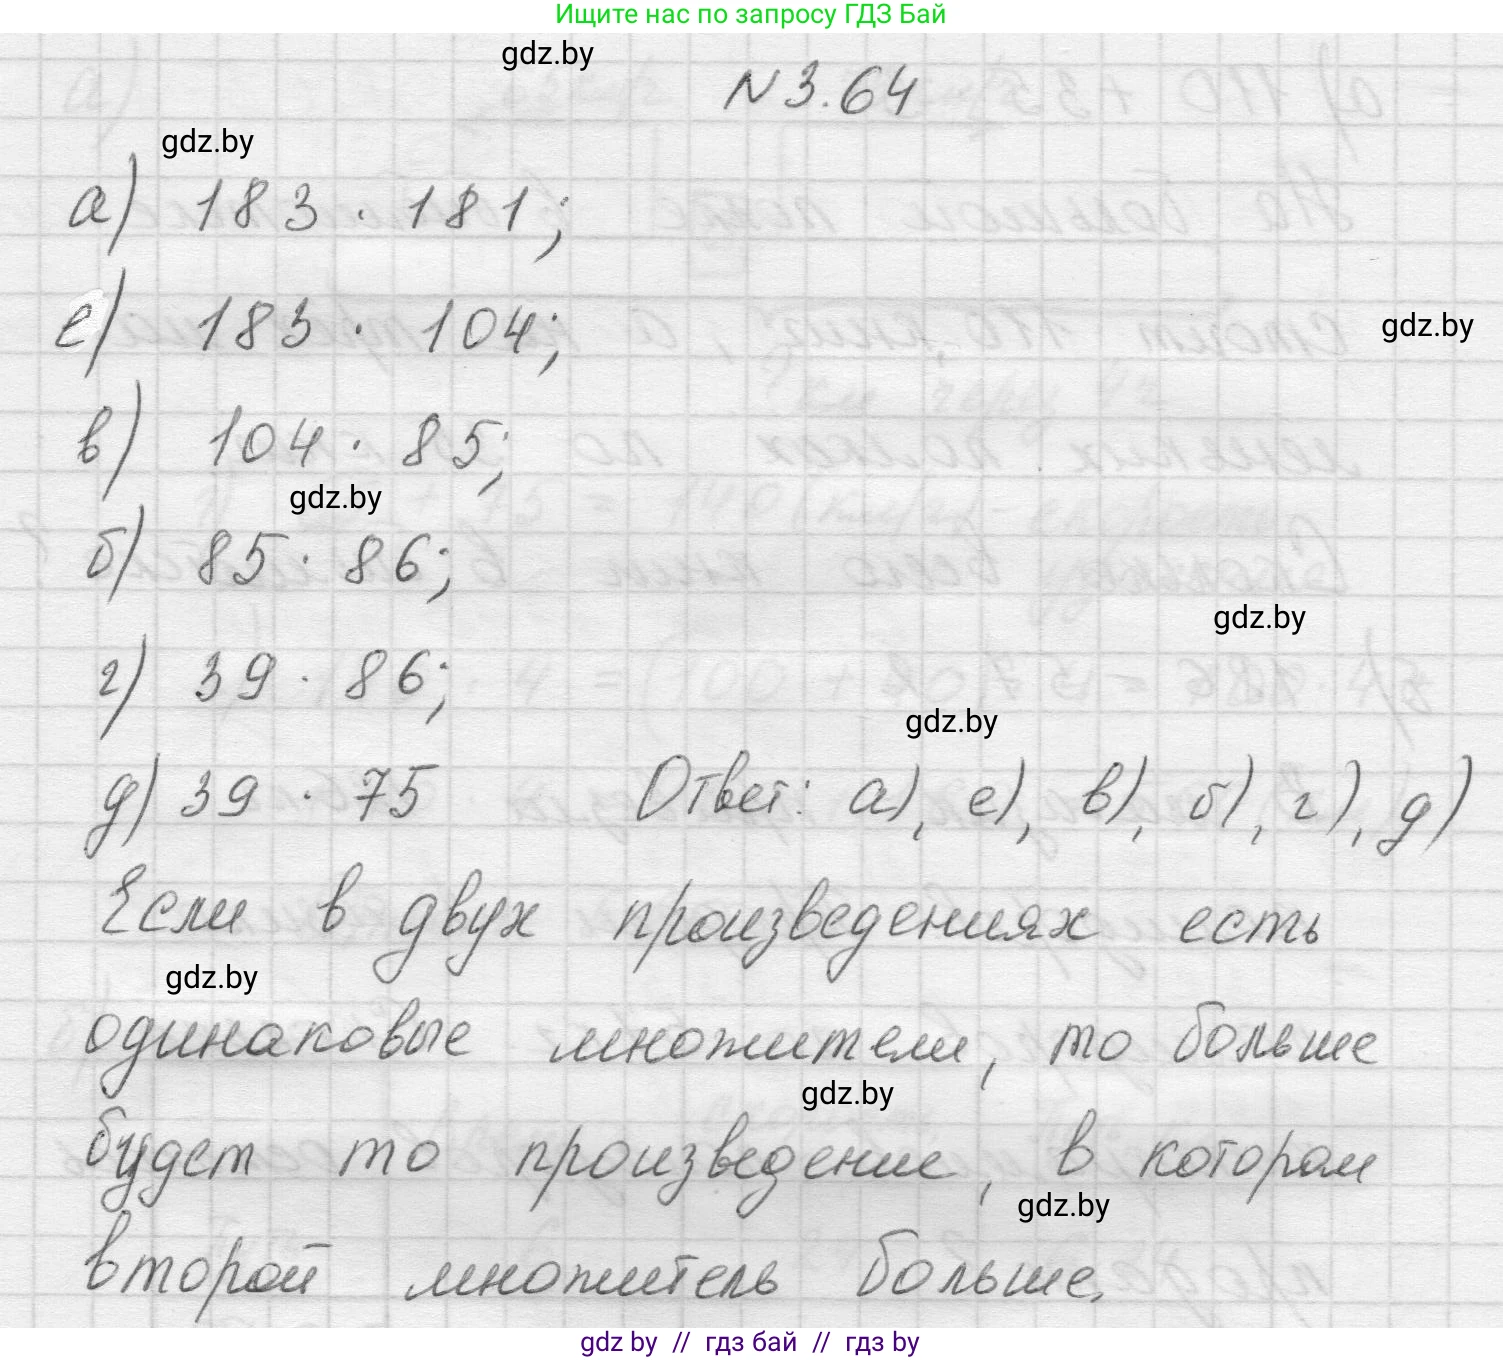 Ищите нас по запросу ГДЗ Бай
gdz.by
N 3.64
gdz.by
а) 183 · 181;
е) 183 · 104;
gdz.by
в) 104 · 85;
gdz.by
б) 85 · 86;
gdz.by
г) 39 · 86;
gdz.by
д) 39 · 75 Ответ: а), е), в), б), г), д)
Если в двух произведениях есть
gdz.by
одинаковые множители, то больше
gdz.by
будет то произведение, в котором
gdz.by
второй множитель больше.
gdz by // гдз бай // гдз by